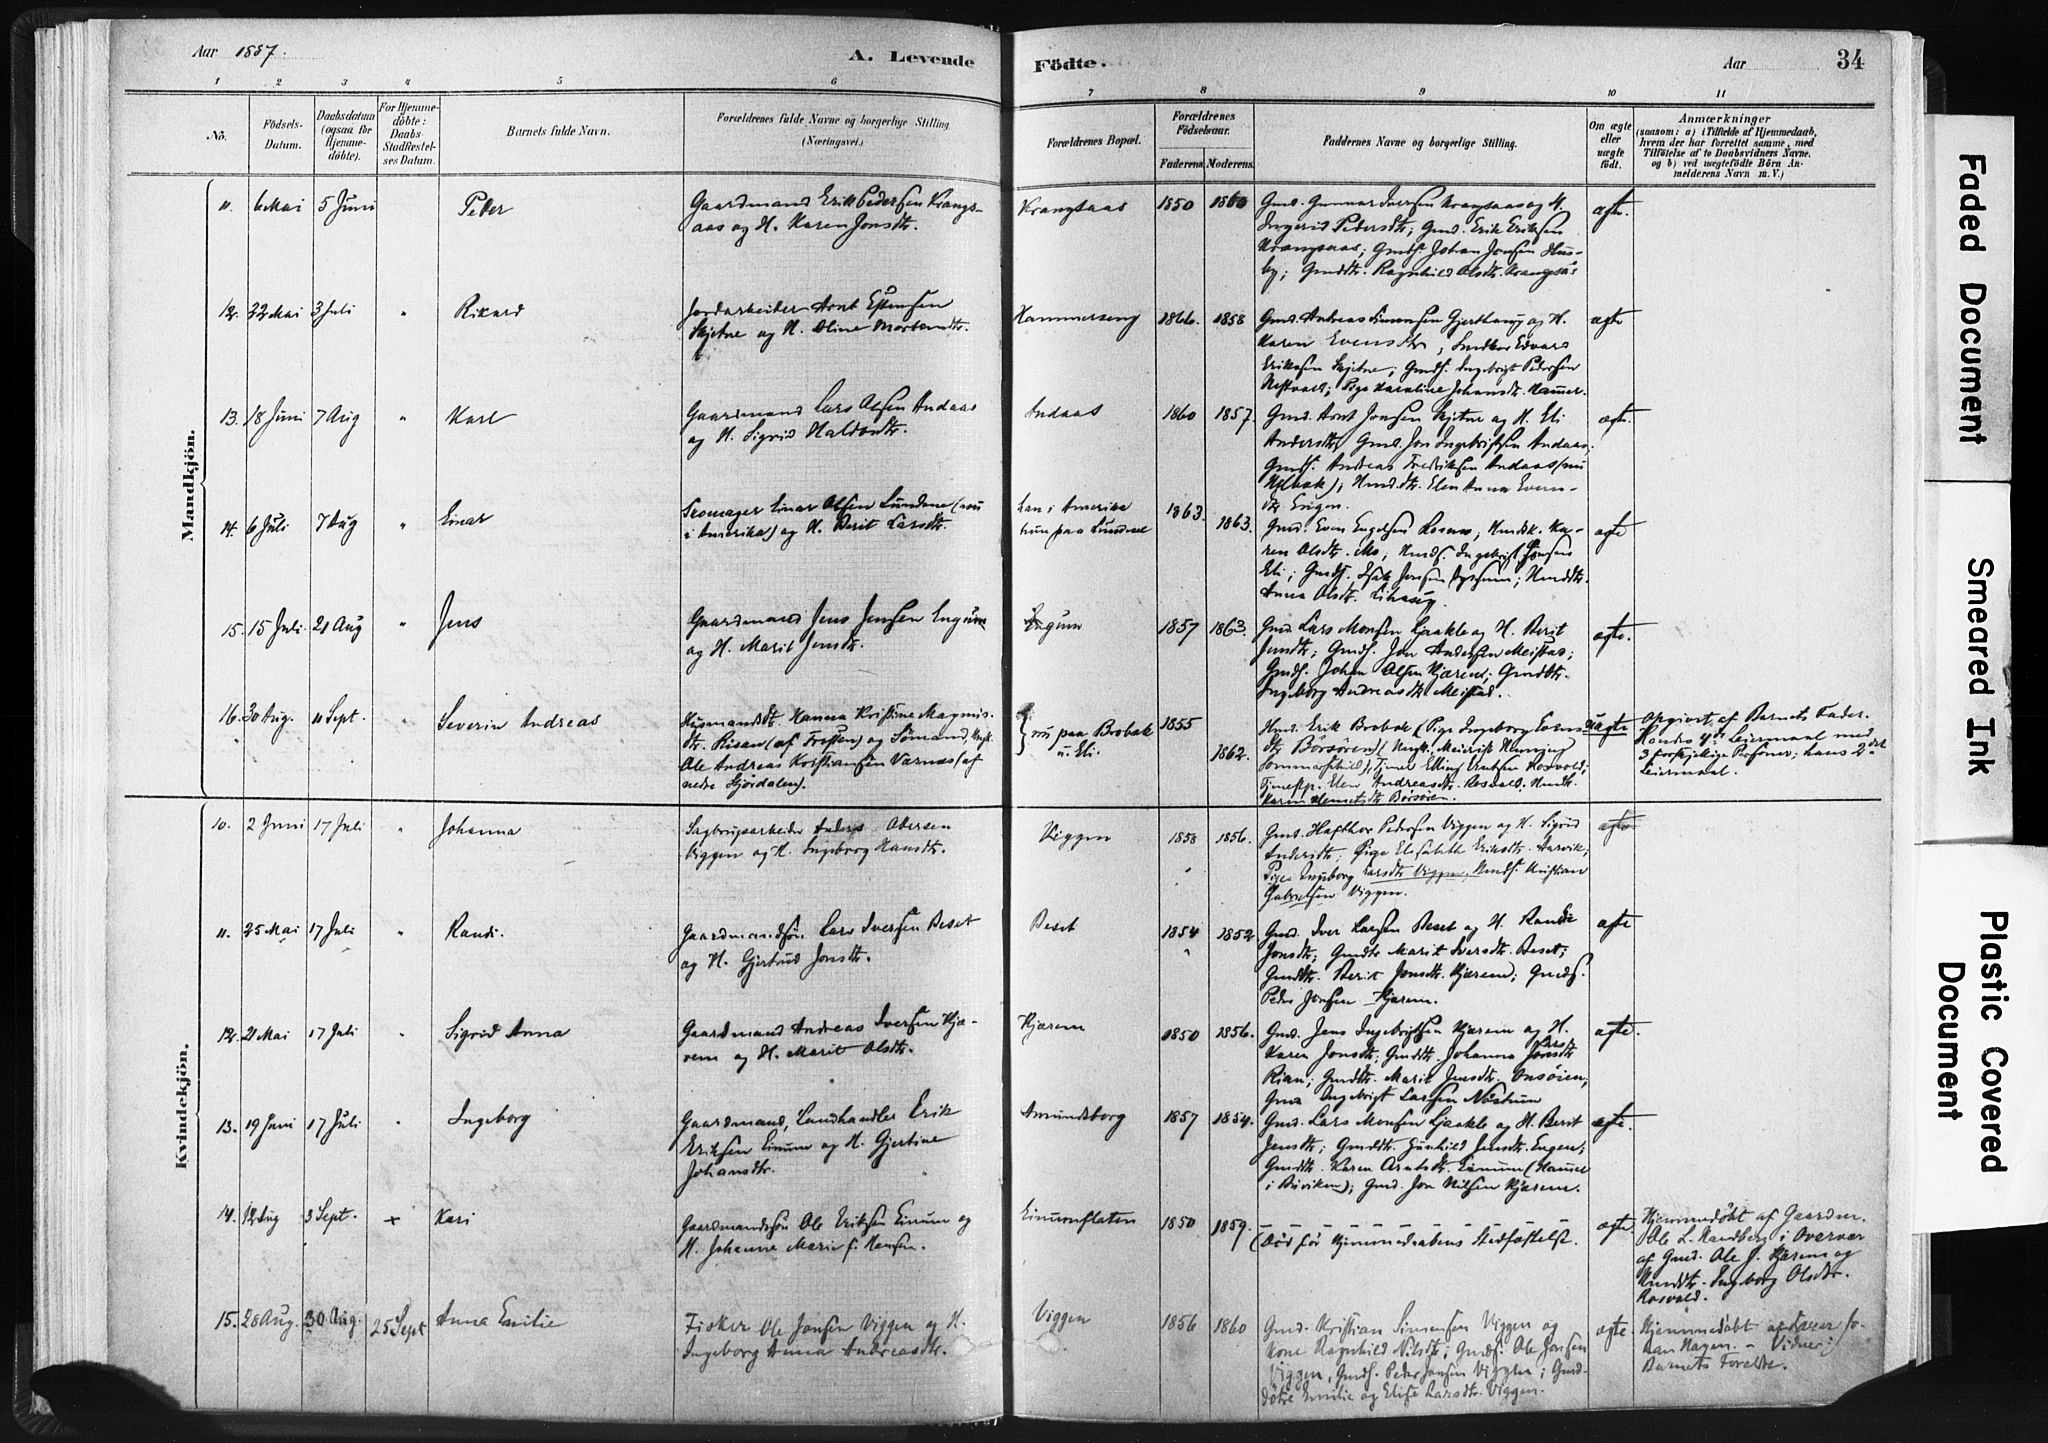 Aar 1887.
A. Levende
Födte.
Aar
34
1 2 3 4 5 6 7 8 9 10 11
No.
Födsels-
Datum.
Daabsdatum
(ogsaa for
Hjemme-
döbte).
For Hjemme-
döbte:
Daabs-
Stadfæstel-
ses Datum.
Barnets fulde Navn.
Forældrenes fulde Navne og borgerlige Stilling
(Næringsvei.)
Forældrenes Bopæl.
Forældrenes
Födselsaar.
Faderens. Moderens.
Faddernes Navne og borgerlige Stilling.
Om ægte
eller
uægte
födt.
Anmærkninger
(saasom: a) i Tilfælde af Hjemmedaab,
hvem der har forrettet samme, med
Tilföielse af to Daabsvidners Navne.
og b) ved uægtefödte Börn An-
melderens Navn m. V.)
Mandkjön.
11. 6 Mai 5 Juni Peter
Gaardmand Erik Pedersen Krangs-
aas og H. Karen Jonsdtr.
Krangsaas 1850 1860
Gmd. Gunnar Iversen Krangsaas og H.
Ingerid Pedersdtr; Gmd. Erik Eriksen
Krangsaas; Gmds. Johan Jonsen Hus-
by; Gmddtr. Ragnhild Olsdtr. Krangsås
ægte.
12. 22 Mai 3 Juli " Rikard
Jordarbeider Arnt Estensen
Skjetne og H. Oline Mortensdtr.
Hammerseng 1866. 1858
Gmd. Andreas Simonsen Gjerthaug og H.
Karen Evensdtr; Smedkar Edvard
Eriksen Skjetne; Gmds. Ingebrigt Pedersen
Pige Karoline Johansdtr. Hammer.
ægte
13. 18 Juni 7 Aug " Karl
Gaardmand Lars Olsen Andaas
og H. Sigrid Haldosdtr.
Andaas 1860 1857.
Gmd. Arnt Jonsen Skjetne og H. Eli
Andersdtr; Gmd. Jon Ingebrigtsen Andaas;
Gmds. Andreas Fredriksen Andaas (nu
Hylbak); Hmd.dtr. Elen Anna Evens-
dtr Engen.
ægte.
14. 6 Juli 7 Aug " Einar
Skomager Einar Olsen Lundene (nu
i Amerika) og H. Berit Larsdtr.
han i Amerika
hun paa Lundene
1863. 1863.
Gmd. Even Engelsen Hmdk. Ka-
ren Olsdtr. Mo; Hmds. Ingebrigt Jonsen
Eli; Gmds. Isak Jonsen Hmddtr.
Anna Olsdtr.
ægte
15. 15 Juli 21 Aug " Jens
Gaardmand Jens Jensen Engum
og H. Marit Jensdtr.
Engum 1857 1863.
Gmd. Lars Monsen Gaakle og H. Berit
Jensdtr; Gmds. Jon Andersen Meistas;
Gmds. Johan Olsen Kjærem; Gmddtr.
Ingeborg Andreasdtr Meistad.
ægte.
16. 30 Aug. 11 Sept. " Severin Andreas
Husmandsdtr. Hanna Kristine Magnus-
dtr. Risan (af Frosten) og Sömand, Ungk.
Ole Andreas Kristiansen Varnes (af
nedre Stjördalen).
nu paa Brobak
u. Eli.
1855 1862.
Hmd. Erik Brobak (Pige Ingeborg Evens-
dtr Börsören) (Ungk. Meinrik Henning
Sommerschild), Elling Arntsen Rosvold,
Elen Andreasdtr. Rosvold. Hmdk.
Karen Klemetsdtr Börsören.
uægte
Opgivet af Barnets Fader.
Hendes 4de Leiermaal med
3 forskjellige Personer; hans 2det
Leiermaal.
Kvindekjön.
10. 2 Juni 17 Juli " Johanna
Sagbrugsarbeider Anders Olersen
Viggen og H. Ingeborg Hansdtr.
Viggen 1858 1856.
Gmd. Hafthor Pedersen Viggen og H. Sigrid
Andersdtr; Pige Elisabeth Eriksdtr. Aarvik;
Pige Ingeborg Larsdtr Viggen, Hmds. Kristian
Gabrielsen Viggen.
ægte
11. 25 Mai 17 Juli " Randi.
Gaardmandssön Lars Iversen Beset
og H. Gjertrud Jonsdtr.
Beset 1854 1852
Gmd. Iver Larsen Beset og H. Randi
Jonsdtr; Gmddtr Marit Iversdtr. Beset;
Gmddtr. Berit Jonsdtr. Kjærem; Gmds.
Peder Jonsen Kjærem.
ægte
12. 21 Mai 17 Juli " Sigrid Anna
Gaardmand Andreas Iversen Kjæ-
rem og H. Marit Olsdtr.
Kjærem 1850 1856.
Gmd. Jens Ingebrigtsen Kjærem og H.
Karen Jonsdtr; Gmddtr. Johanna Larsdtr
Rian; Gmddtr. Marit Jensdtr. Onsöien;
Gmd Ingebrigt Larsen Nöstrum
ægte.
13. 19 Juni 17 Juli " Ingeborg
Gaardmand, Landhandler Erik
Eriksen Einum og H. Gjertine
Johansdtr.
Amundsborg 1857 1854.
Gmd. Lars Monsen Gaakle og H. Berit
Jensdtr; Gmddtr. Gunhild Jensdtr. Engen;
Gmddtr. Karen Arntsdtr. Einum (Hammer
i Buviken); Gmd. Jon Nilsen Kjærem.
ægte.
14. 12 Aug 3 Sept. + Kari
Gaardmandssön Ole Eriksen Einum og
H. Johanne Marie f. Hansen.
Einumflaten 1850 1859.
(Död för Hjemmedaabens Stadfæstelse.
ægte.
Hjemmedöbt af Gaardm.
Ole L. Sandberg i Overvær
af Gmd. Ole J. Kjærem og
Hmddtr. Ingeborg Olsdtr.
Rosvold.
15. 28 Aug. 30 Aug. 25 Sept Anna Emilie
Fisker Ole Jonsen Viggen og H.
Ingeborg Anna Andreasdtr.
Viggen 1856 1860
Gmd. Kristian Simonsen Viggen og
Kone Ragnhild Nilsdtr; Gmds. Ole Jonsen
Viggen, Gmds. Peder Jonsen Viggen; Gmd-
dötre Emilie og Elise Larsdtr. Viggen.
ægte.
Hjemmedöbt af Lærer Jo-
han Hagen. – Vidner:
Barnets Forældre.
Faded Document
Smeared Ink
Plastic Covered
Document